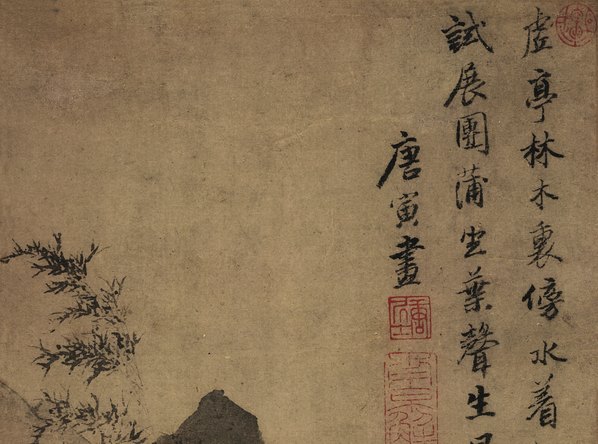 虗亭林木裏傍水着
試展團蒲坐葉聲生
唐寅畫